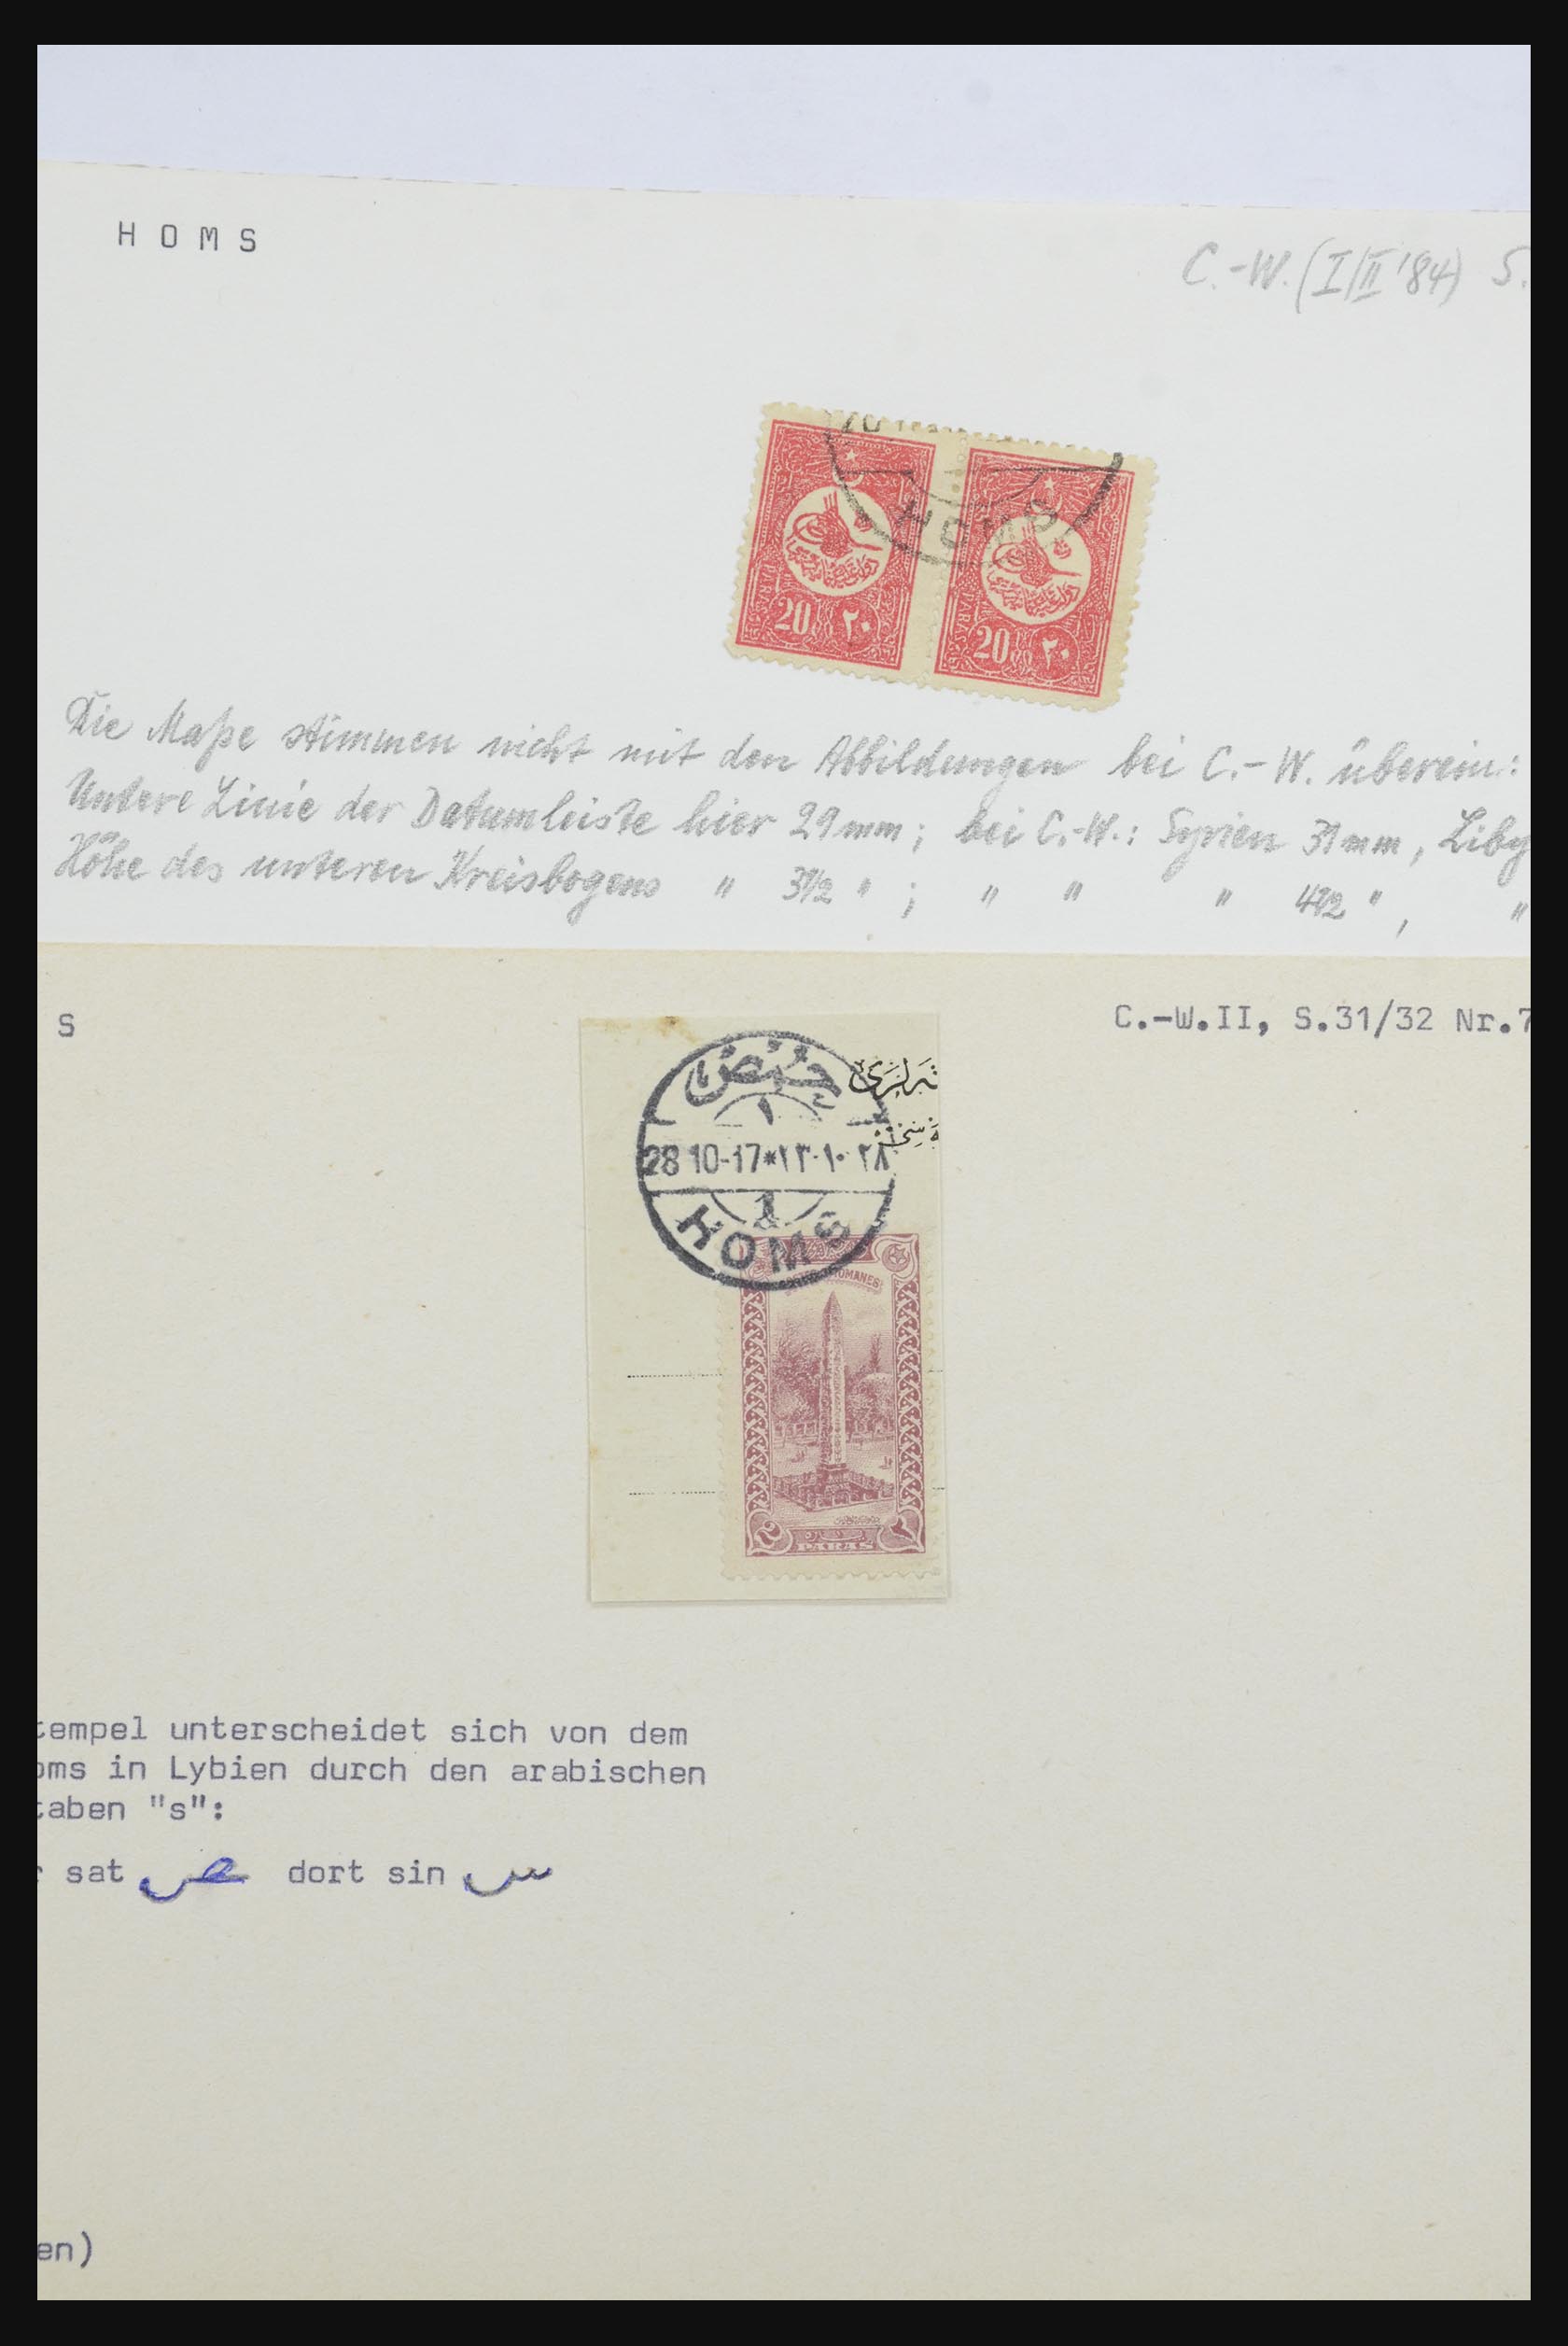 H O M S
C.-W. (I/II '84) S.
HOMS
20 ٢٠
20 ٢٠
Die Maße stimmen nicht mit den Abbildungen bei C.-W. überein:
Untere Linie der Datumleiste hier 29 mm; bei C.-W.: Syrien 31 mm, Liby
Höhe des unteren Kreisbogens " 3 1/2 "; " " " 4 1/2 ", "
S
C.-W.II, S.31/32 Nr.7
حمص
١
28 10-17*١٣-١٠ ٢٨
1
HOMS
2 PARAS ٢
tempel unterscheidet sich von dem
oms in Lybien durch den arabischen
taben "s":
r sat ص dort sin س
en)